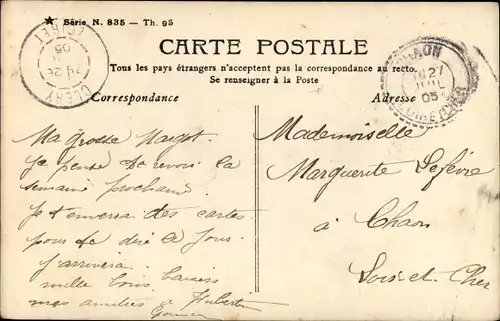 ★ Série N. 835 — Th. 95
CARTE POSTALE
Tous les pays étrangers n'acceptent pas la correspondance au recto.
Se renseigner à la Poste
Correspondance
Adresse
CLÉRY
LOIRET
05
CHAON
27
JUIL
05
LOIR ET CHER
Ma grosse Margot.
Je pense te revoir la
semaine prochaine
Je t'enverrai des cartes
pour te dire le jour.
j'arriverai.
mille bons baisers
mes amitiés à Hubertin
Mademoiselle
Marguerite Lefèvre
à Chaon
Loir-et-Cher